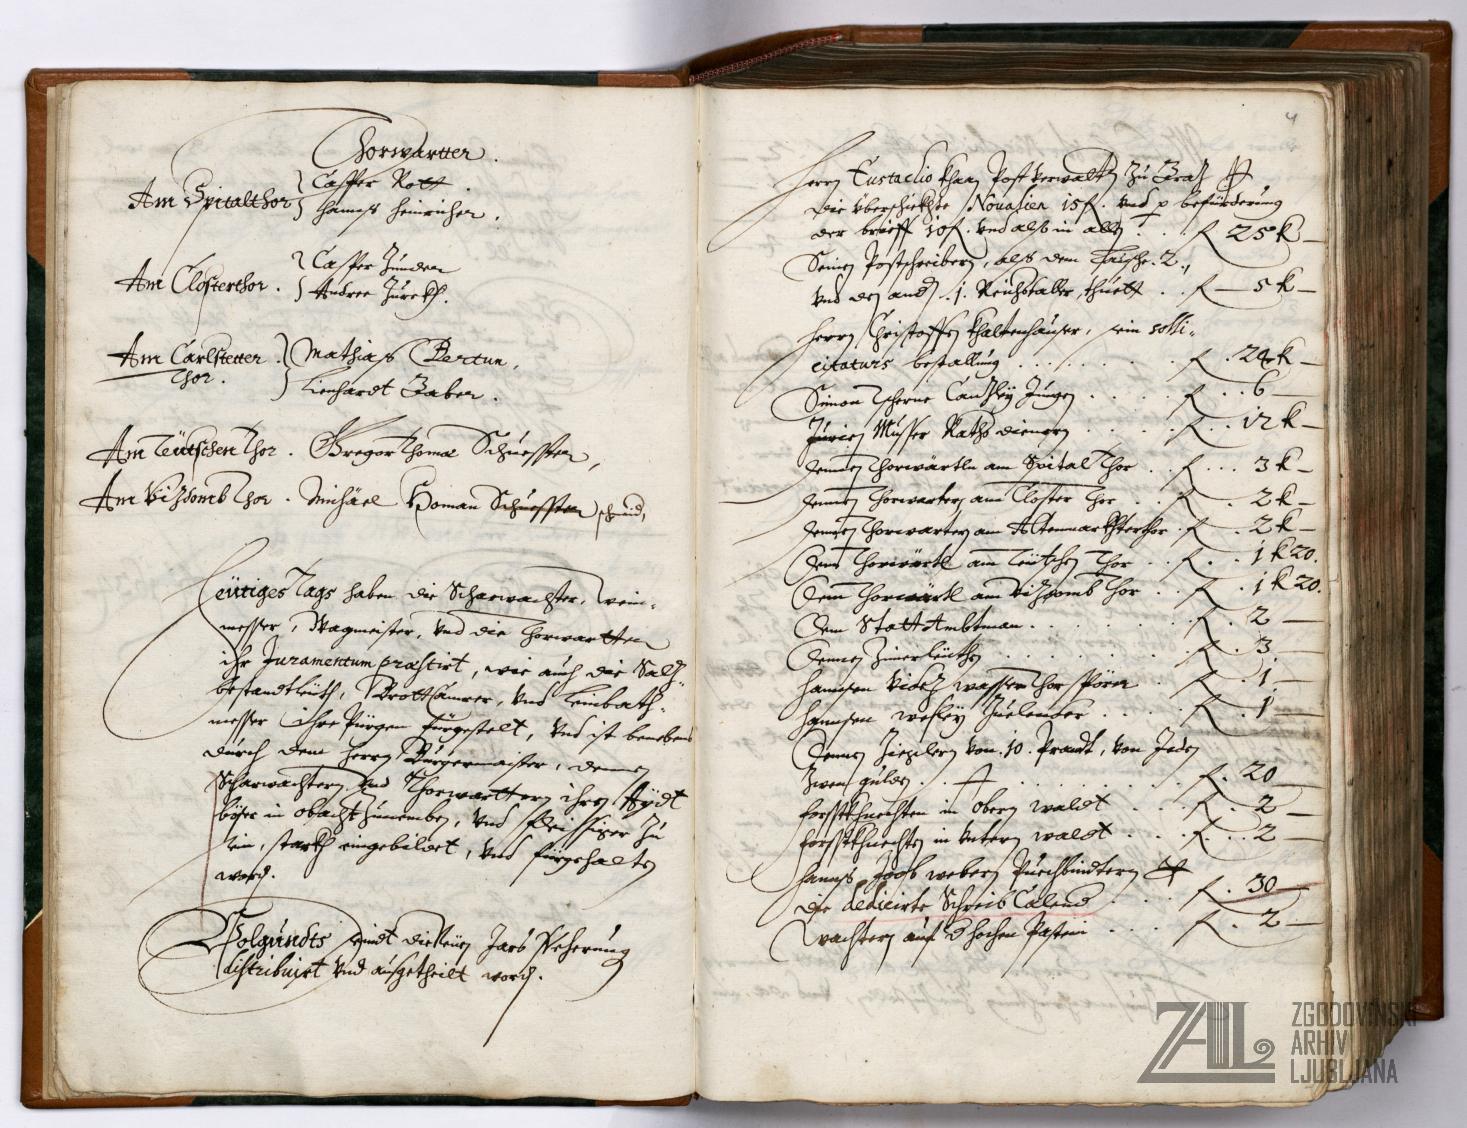 Thorwartter.
Am Spitalthor } Casper Rott.
} Hannß Heinricher.
Am Closterthor. } Casper
} Andree
Am Carlstetter Thor. } Mathiaß Pertun,
} Lienhardt Gaber.
Am Teütschen Thor. Gregor Thoma Schuesster,
Am Vizdomb Thor. Michäel Homan Schuesster schmid,
Heütiges Tags haben die Scharwachter, Wein-
messer, Wagmeister, Vnd die Thorwartter
ihr Juramentum præstirt, wie auch die Salz-
bestandtleüth, Brott Camrer, Vnd Leinbath-
messer ihre Pürgen fürgestelt, Vnd ist benebens
durch dem Herrn Burgermaister, denen
Scharwachtern Vnd Thorwarttern ihren Aydt
in obacht Zunemben, Vnd fleissiger Zu
sein, starkh eingebildet, Vnd fürgehalten
worden.
Volgundts seindt die Neuen Jars Verehrung
distribuirt Vnd außgetheilt worden.
4
Herrn Eustachio Postverwalter Zu Graz
die überschickhte Nouasien 15 f. Vnd p befürderung
der brieff 10 f. Vnd also in allem f 25 k —
Seinen Postschreibern, alß dem 2.
Vnd den andern 1. Reichstaller, thuett f — 5 k —
Herrn Christoffen Khaltenhauser, sein solli-
citaturs bestallung f. 24 k —
Simon Canzley Jungen f. 6 —
Jurien Musser Rathsdienern f. 12 k —
denen Thorwärtln am Spital Thor f. 3 k —
denen Thorwartern am Closter Thor f. 2 k —
denen Thorwartern am Altenmarkhterthor f. 2 k —
dem Thorwärtl am Teütschen Thor f. 1 k 20.
dem Thorwärtl am Vizdomb Thor f. 1 k 20.
dem Statt Ambtman f. 2 —
denen Zimerleüthen f. 3 —
Hannsen wasser Thor Spörer f. 1 —
Hannsen f. 1 —
denen Zieglern von 10. Prandt, von Jeden
Zwen gulden f. 20 —
Forsstkhnechten in obern waldt f. 2 —
Forsstkhnechten in Vntern waldt f. 2 —
Hannß Jacob webern Puechbindtern
die dedicirte Schreib Calend f. 30 —
Wachtern auf d hochen Pastein f. 2 —
ZAL ZGODOVINSKI
ARHIV
LJUBLJANA